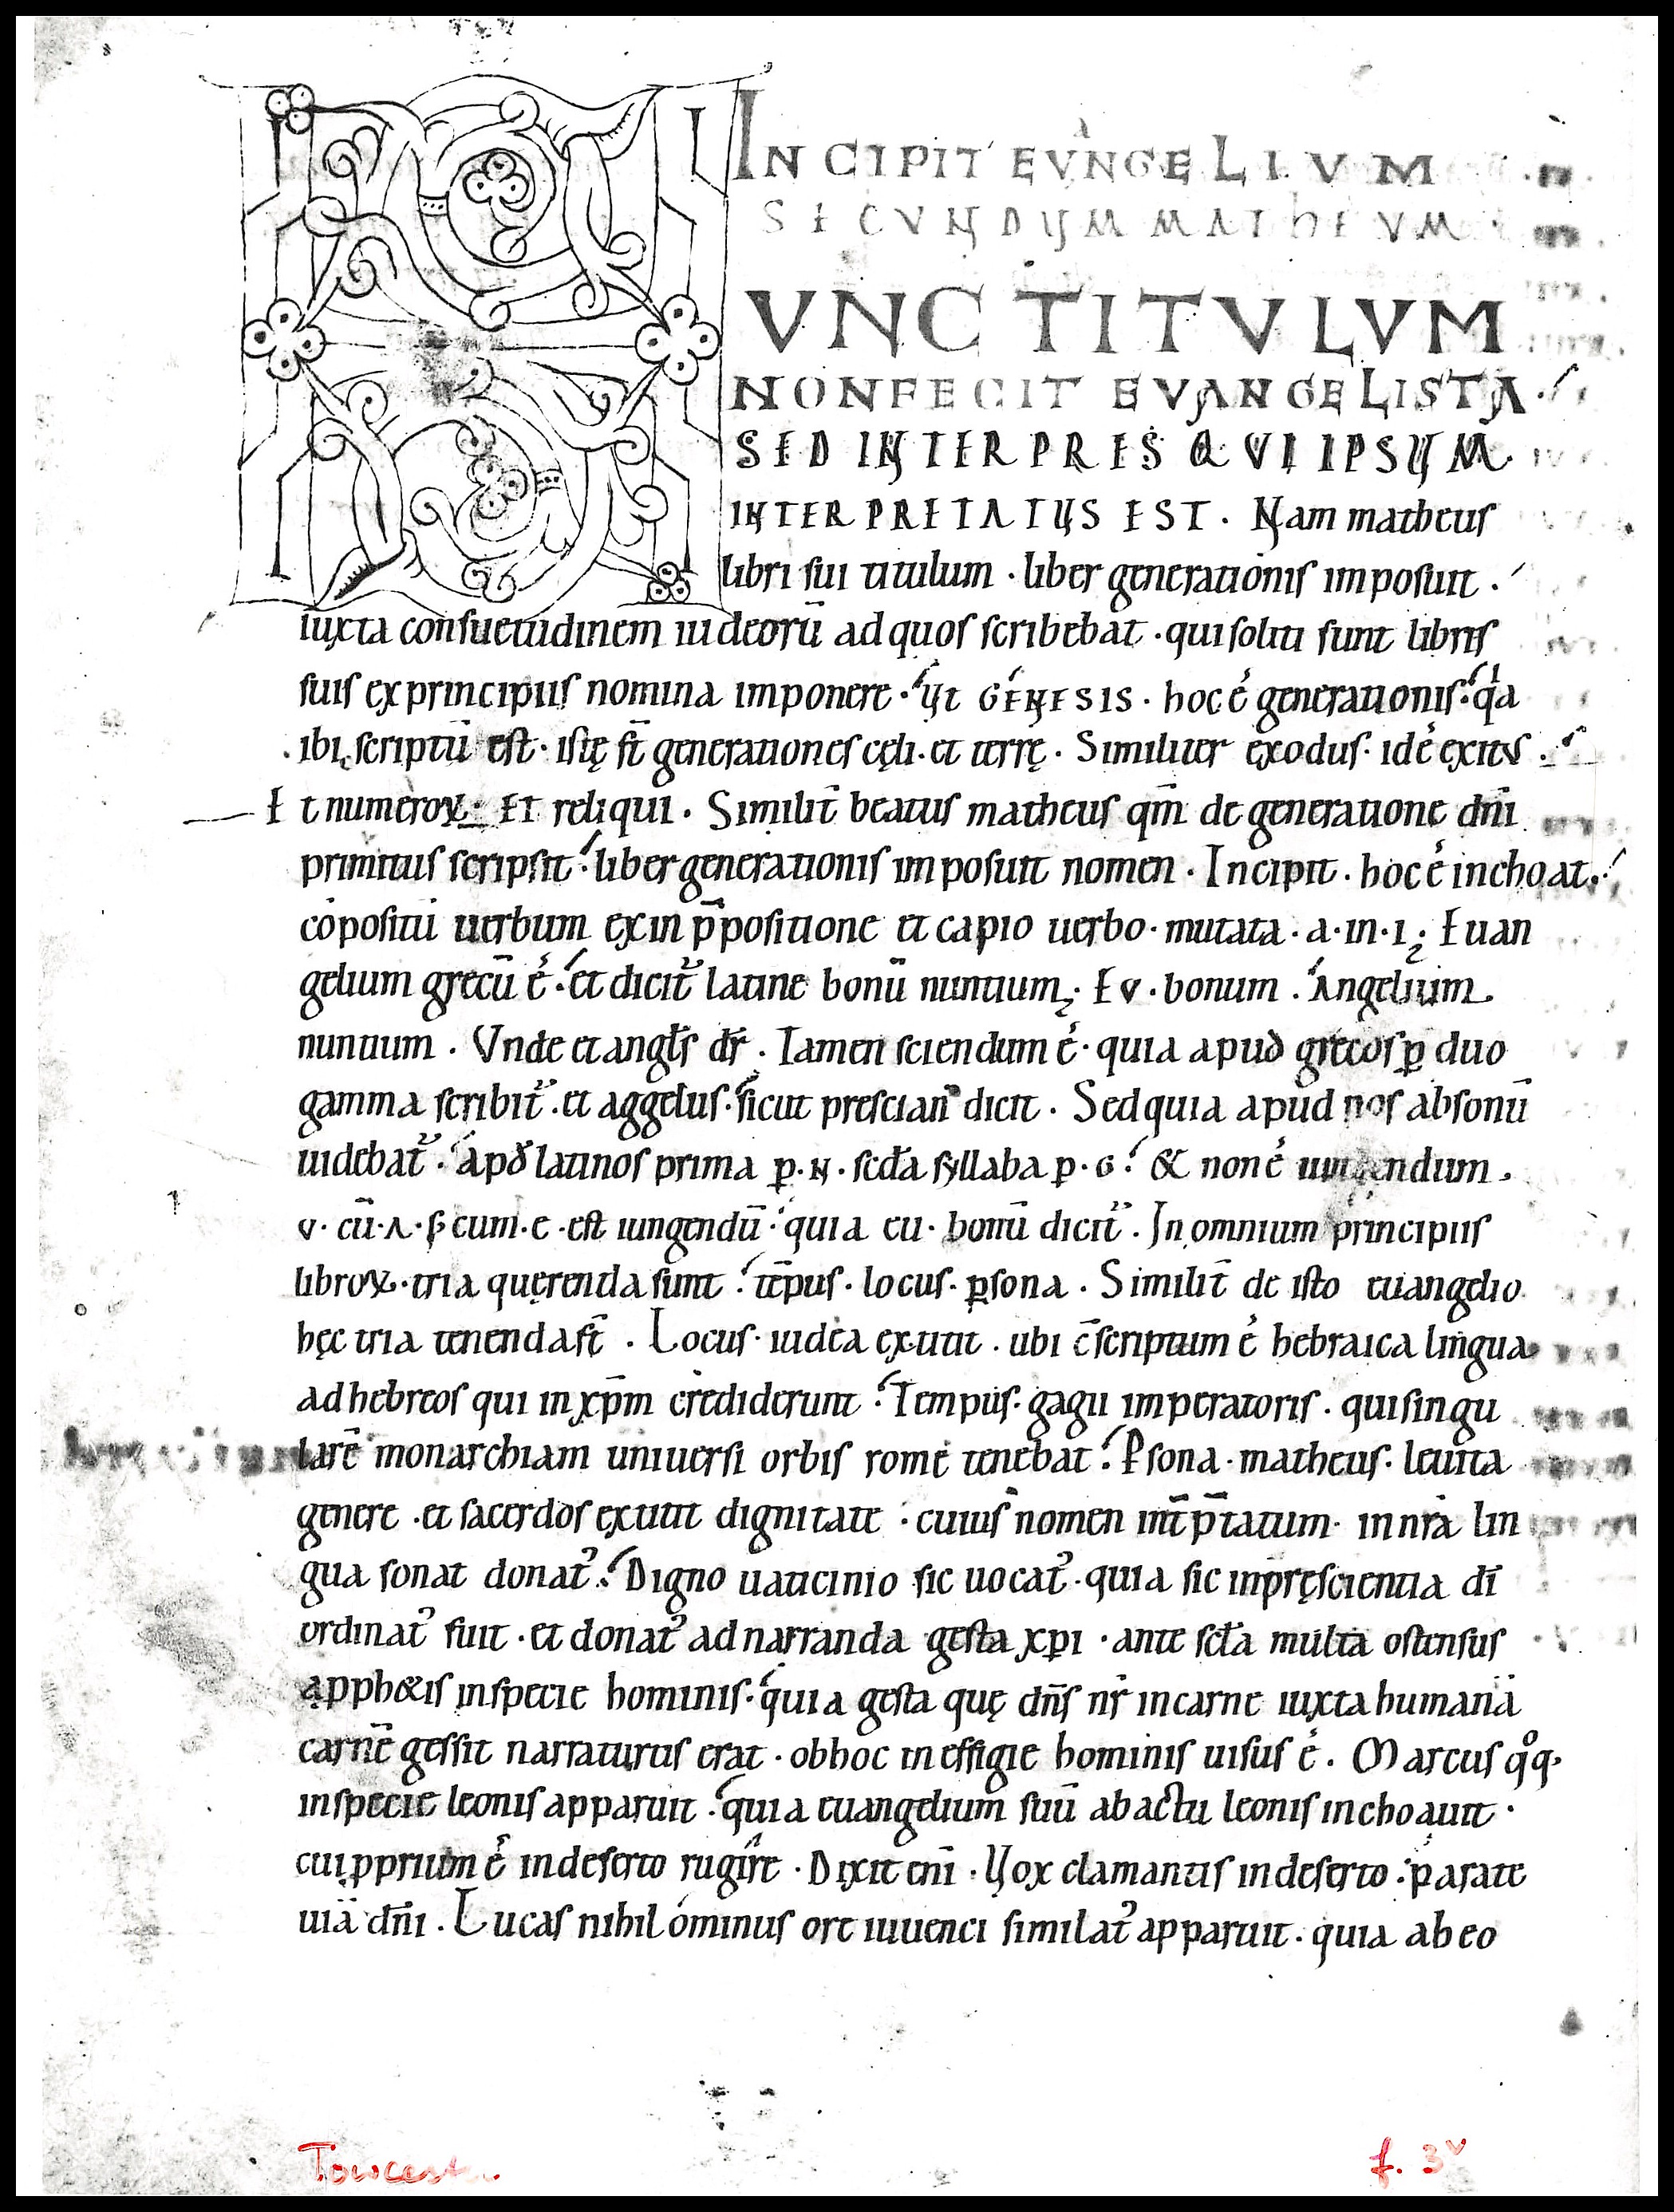 INCIPIT EVNGELIVM
SECVNDVM MATHEVM
HVNC TITVLVM
NON FECIT EVANGELISTA.
SED INTERPRES QVI IPSVM
INTERPRETATVS EST. Nam matheus
libri sui titulum · liber generationis imposuit .
iuxta consuetudinem iudeorū ad quos scribebat · qui soliti sunt libris
suis ex principiis nomina imponere · ut GENESIS · hoc ē generationis · qa
ibi scriptū est · istę st̄ generationes cęli · et terrę · Similiter exodus · idē exitus .
Et numeroꝝ · Et reliqui · Similit̄ beatus matheus qm̄ de generatione dn̄i
primitus scripsit · liber generationis imposuit nomen · Incipit · hoc ē inchoat .
cōpositū uerbum ex in p̄positione et capio uerbo · mutata · a · in · i · Euan
gelium grecū ē · et dicit᷑ latine bonū nuntium · Eu · bonum · Angelium
nuntium · Vnde et angl̄s dr̄ . Tamen sciendum ē · quia apud grecos ꝑ duo
gamma scribit᷑ · et aggelus · sicut prescianꝰ dicit · Sed quia apud nos absonū
uidebat᷑ · apđ latinos prima ꝑ · N · scđa syllaba ꝑ · G · & non ē iungendum .
v · cū · A · s; cum · e · est iungendū · quia eu · bonū dicit᷑ . In omnium principiis
libroꝝ · tria quęrenda sunt · tēpus · locus · ꝑsona · Similit̄ de isto euangelio
hęc tria tenenda st̄ . Locus · iudea extitit · ubi c̄scriptum ē hebraica lingua
ad hebreos qui in xp̄m crediderunt · Tempus · gagii imperatoris · qui singu
larē monarchiam uniuersi orbis rome tenebat · Ꝑsona · matheus · leuita
genere · et sacerdos extitit dignitate · cuius nomen int̄p̄tatum · in nr̄a lin
gua sonat donatꝰ · Digno uaticinio sic uocatꝰ · quia sic in pręscientia dī
ordinatꝰ fuit · et donatꝰ ad narranda gesta xp̄i · ante scđa multa ostensus
a pph&is in specie hominis · quia gesta quę dn̄s nr̄ in carne iuxta humanā
carnē gessit narraturus erat · ob hoc in effigie hominis uisus ē . Marcus qͦq;
in specie leonis apparuit · quia euangelium suū ab actu leonis inchoauit ·
cui ꝓprium ē in deserto rugire · Dixit enī · Vox clamantis in deserto · parate
uiā dn̄i . Lucas nihilominus ore iuuenci similatꝰ apparuit · quia ab eo
f. 3v